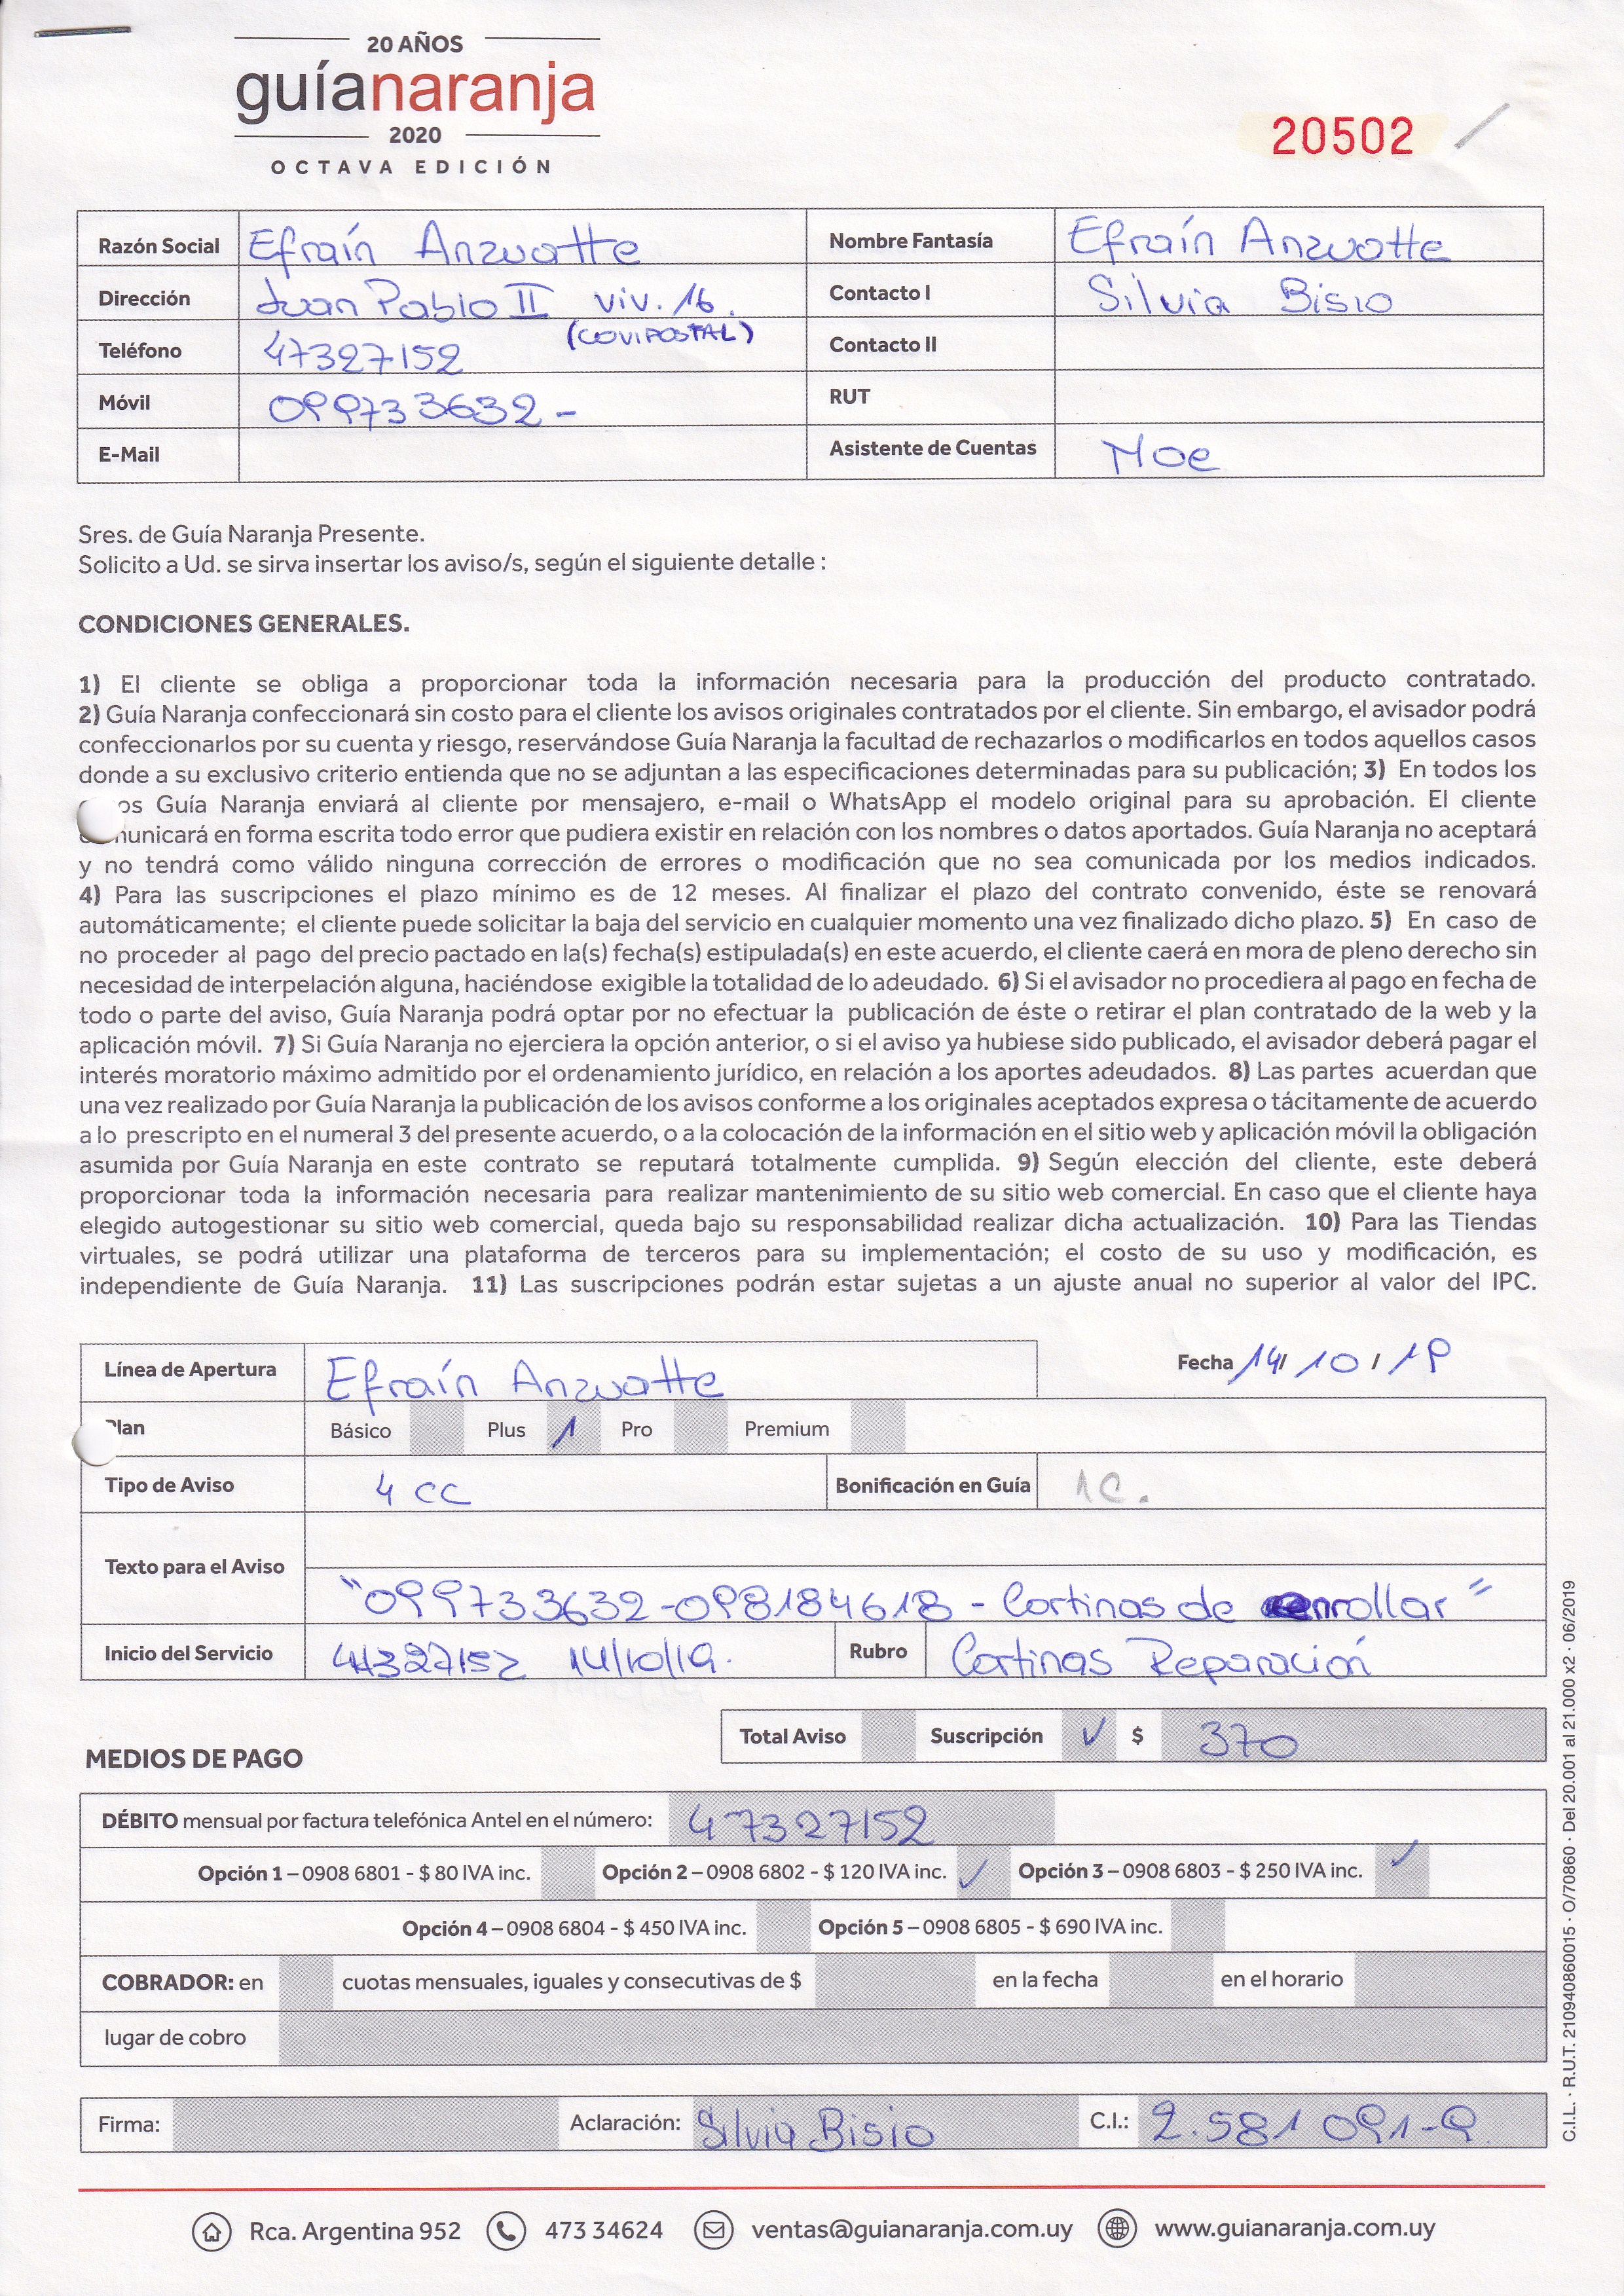 20 AÑOS
guíanaranja
2020
OCTAVA EDICIÓN
20502
Razón Social Efraín Anzuatte Nombre Fantasía Efraín Anzuatte
Dirección Juan Pablo II viv. 16. Contacto I Silvia Bisio
(COVIPOSTAL)
Teléfono 47327152 Contacto II
Móvil 099733632 - RUT
E-Mail Asistente de Cuentas Noe
Sres. de Guía Naranja Presente.
Solicito a Ud. se sirva insertar los aviso/s, según el siguiente detalle :
CONDICIONES GENERALES.
1) El cliente se obliga a proporcionar toda la información necesaria para la producción del producto contratado.
2) Guía Naranja confeccionará sin costo para el cliente los avisos originales contratados por el cliente. Sin embargo, el avisador podrá
confeccionarlos por su cuenta y riesgo, reservándose Guía Naranja la facultad de rechazarlos o modificarlos en todos aquellos casos
donde a su exclusivo criterio entienda que no se adjuntan a las especificaciones determinadas para su publicación; 3) En todos los
os Guía Naranja enviará al cliente por mensajero, e-mail o WhatsApp el modelo original para su aprobación. El cliente
municará en forma escrita todo error que pudiera existir en relación con los nombres o datos aportados. Guía Naranja no aceptará
y no tendrá como válido ninguna corrección de errores o modificación que no sea comunicada por los medios indicados.
4) Para las suscripciones el plazo mínimo es de 12 meses. Al finalizar el plazo del contrato convenido, éste se renovará
automáticamente; el cliente puede solicitar la baja del servicio en cualquier momento una vez finalizado dicho plazo. 5) En caso de
no proceder al pago del precio pactado en la(s) fecha(s) estipulada(s) en este acuerdo, el cliente caerá en mora de pleno derecho sin
necesidad de interpelación alguna, haciéndose exigible la totalidad de lo adeudado. 6) Si el avisador no procediera al pago en fecha de
todo o parte del aviso, Guía Naranja podrá optar por no efectuar la publicación de éste o retirar el plan contratado de la web y la
aplicación móvil. 7) Si Guía Naranja no ejerciera la opción anterior, o si el aviso ya hubiese sido publicado, el avisador deberá pagar el
interés moratorio máximo admitido por el ordenamiento jurídico, en relación a los aportes adeudados. 8) Las partes acuerdan que
una vez realizado por Guía Naranja la publicación de los avisos conforme a los originales aceptados expresa o tácitamente de acuerdo
a lo prescripto en el numeral 3 del presente acuerdo, o a la colocación de la información en el sitio web y aplicación móvil la obligación
asumida por Guía Naranja en este contrato se reputará totalmente cumplida. 9) Según elección del cliente, este deberá
proporcionar toda la información necesaria para realizar mantenimiento de su sitio web comercial. En caso que el cliente haya
elegido autogestionar su sitio web comercial, queda bajo su responsabilidad realizar dicha actualización. 10) Para las Tiendas
virtuales, se podrá utilizar una plataforma de terceros para su implementación; el costo de su uso y modificación, es
independiente de Guía Naranja. 11) Las suscripciones podrán estar sujetas a un ajuste anual no superior al valor del IPC.
Línea de Apertura Efraín Anzuatte Fecha 14/ 10 / 19
lan Básico Plus 1 Pro Premium
Tipo de Aviso 4 CC Bonificación en Guía 1C.
Texto para el Aviso
"099733632-098184618 - Cortinas de enrollar"
Inicio del Servicio 47327152 14/10/19. Rubro Cortinas Reparación
Total Aviso Suscripción ✓ $ 370
MEDIOS DE PAGO
DÉBITO mensual por factura telefónica Antel en el número: 47327152
Opción 1 – 0908 6801 - $ 80 IVA inc. Opción 2 – 0908 6802 - $ 120 IVA inc. ✓ Opción 3 – 0908 6803 - $ 250 IVA inc. ✓
Opción 4 – 0908 6804 - $ 450 IVA inc. Opción 5 – 0908 6805 - $ 690 IVA inc.
COBRADOR: en cuotas mensuales, iguales y consecutivas de $ en la fecha en el horario
lugar de cobro
Firma: Aclaración: Silvia Bisio C.I.: 2.581 091-9
Rca. Argentina 952 473 34624 ventas@guianaranja.com.uy www.guianaranja.com.uy
C.I.L. · R.U.T. 210940860015 · O/70860 · Del 20.001 al 21.000 x2 · 06/2019